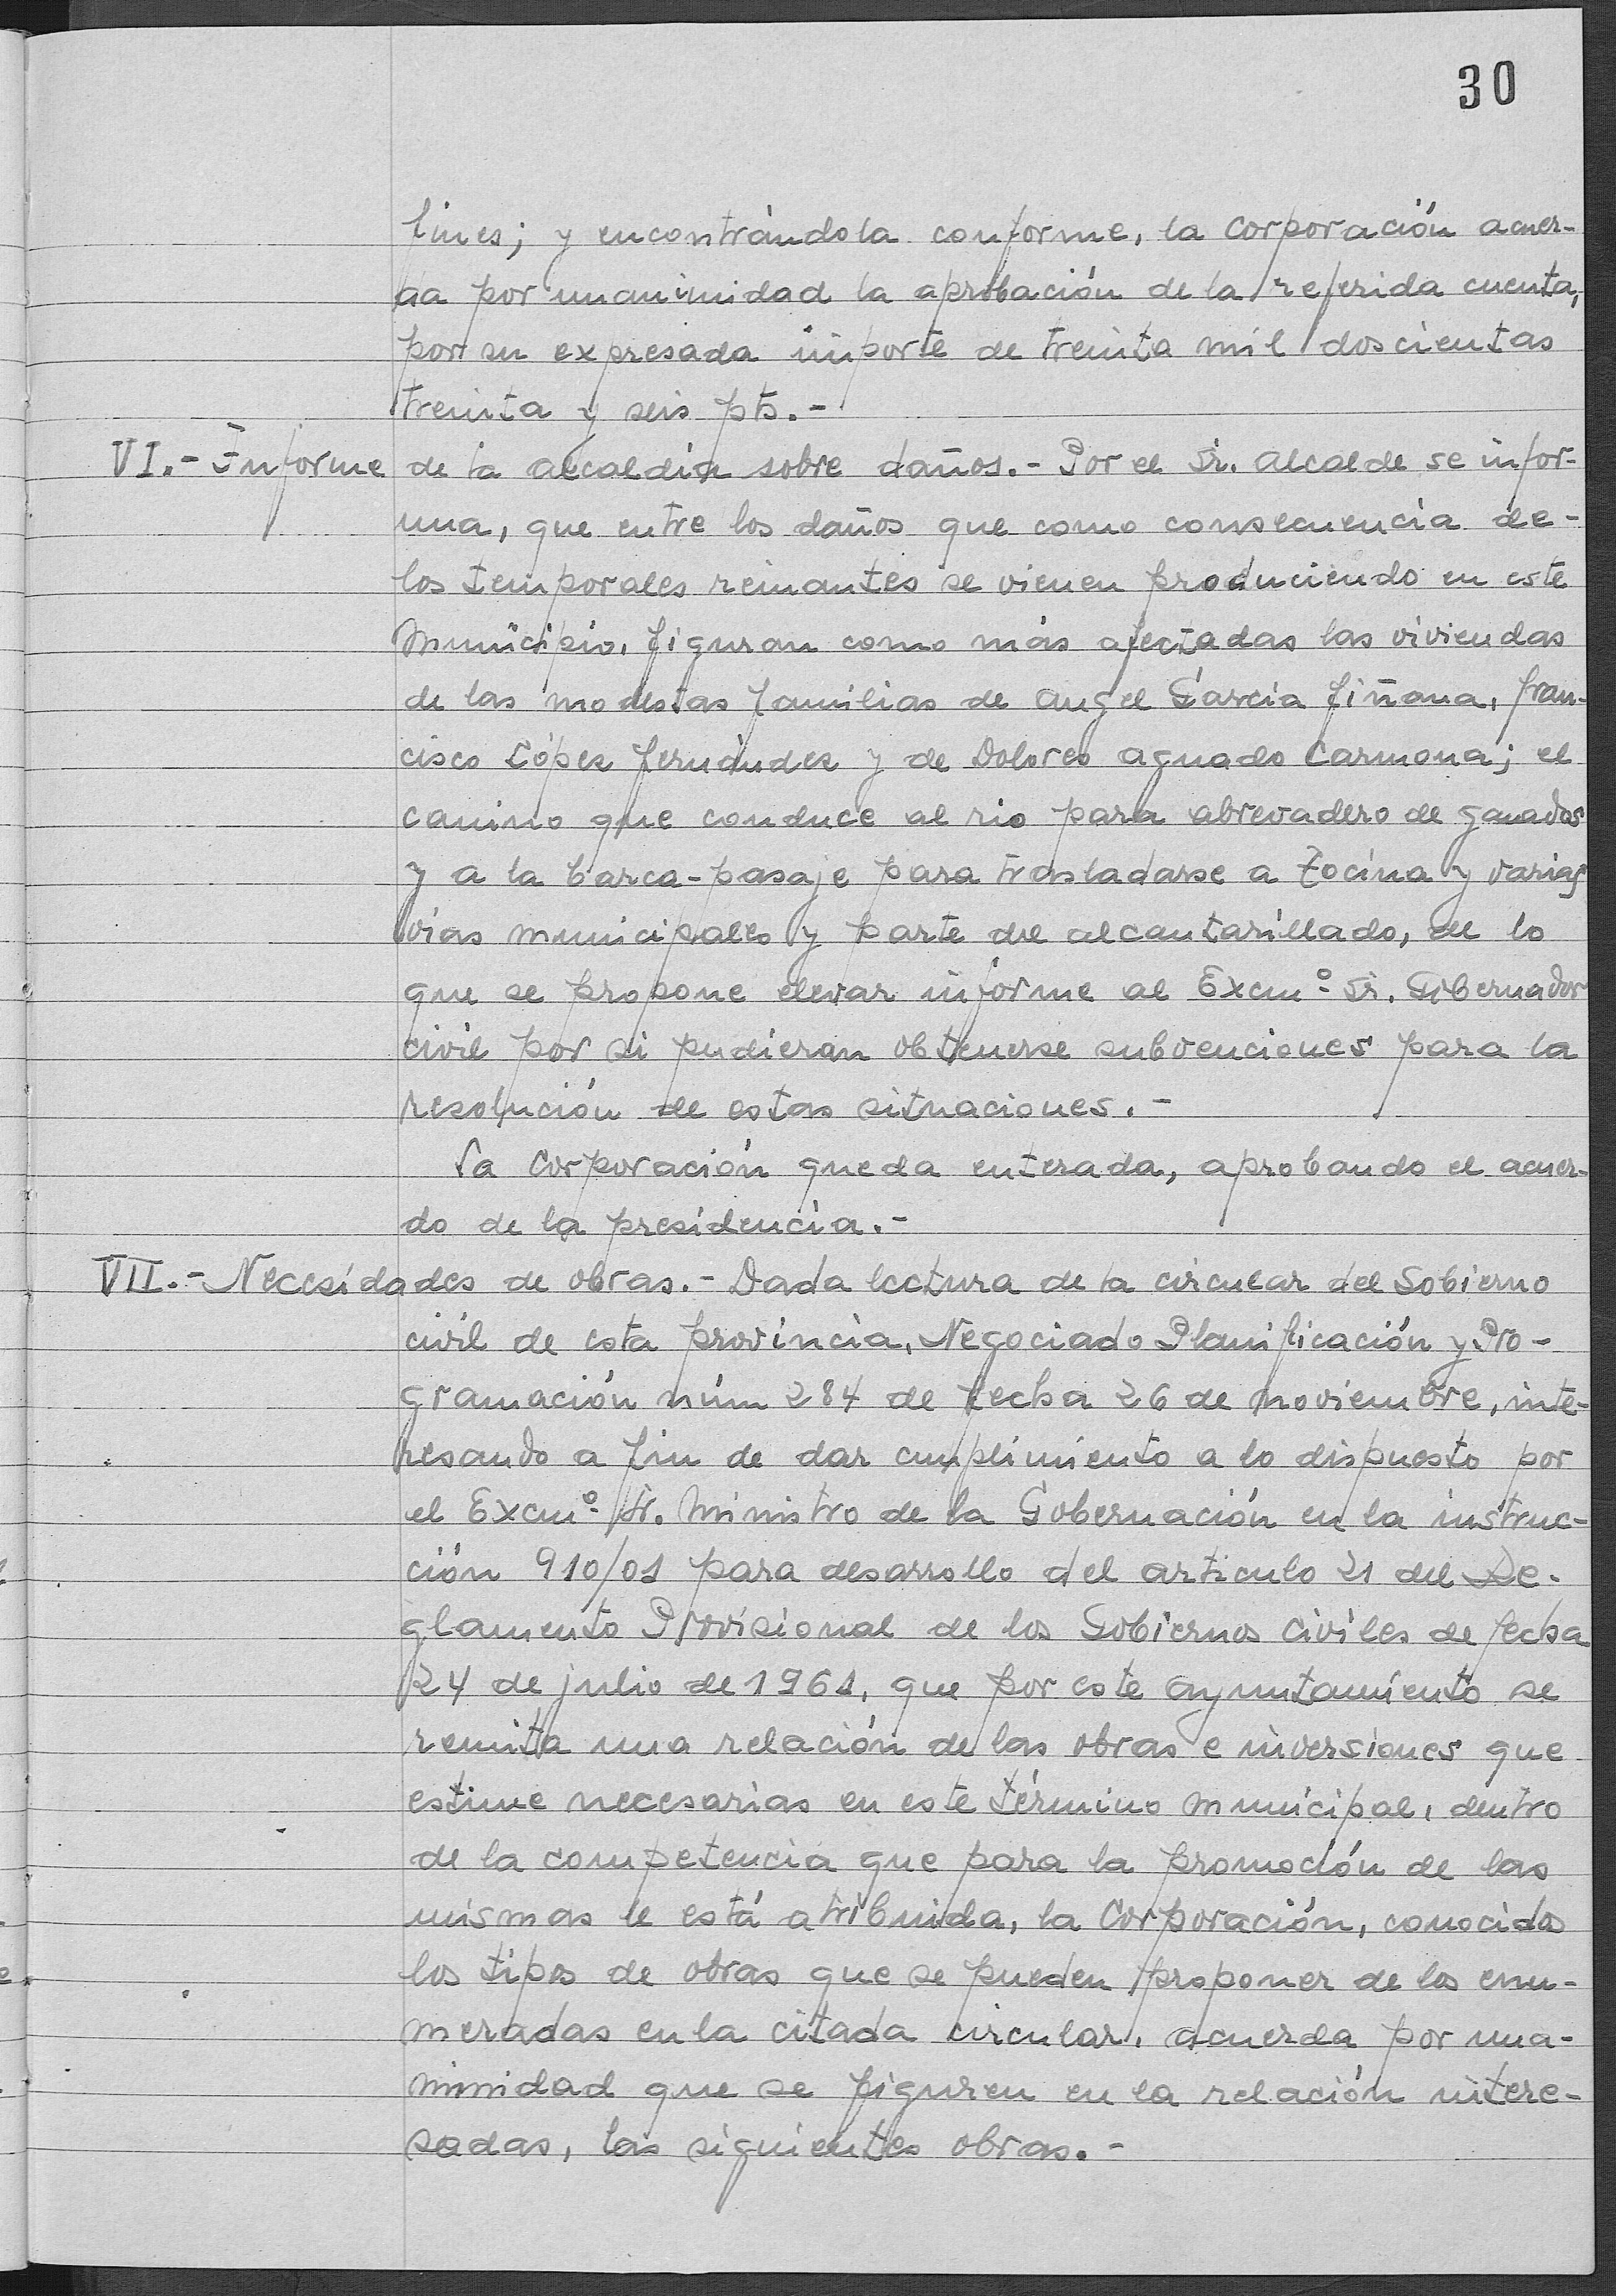 30
lines; y encontrándola conforme, la Corporación acuer-
da por unanimidad la aprobación de la referida cuenta,
por su expresada importe de treinta mil doscientas
treinta y seis pts.-
VI.- Informe de la alcaldía sobre daños.- Por el Sr. Alcalde se infor-
ma, que entre los daños que como consecuencia de-
los temporales reinantes se vienen produciendo en este
Municipio, figuran como más afectadas las viviendas
de las modestas familias de Angel García Fiñana, Fran-
cisco López Fernández y de Dolores Aguado Carmona; el
camino que conduce al rio para abrevadero de ganados
y a la barca-pasaje para trasladarse a Tocina y varias
vías municipales y parte del alcantarillado, de lo
que se propone elevar informe al Excmº Sr. Gobernador
civil por si pudieran obtenerse subvenciones para la
resolución de estas situaciones.-
La Corporación queda enterada, aprobando el acuer-
do de la presidencia.-
VII.- Necesidades de obras.- Dada lectura de la circular del Gobierno
civil de esta provincia, Negociado Planificación y Pro-
gramación núm 284 de fecha 26 de noviembre, inte-
resando a fin de dar cumplimiento a lo dispuesto por
el Excmº Sr. Ministro de la Gobernación en la instruc-
ción 910/01 para desarrollo del articulo 21 del Re-
glamento Provisional de los Gobiernos Civiles de fecha
24 de julio de 1961, que por este ayuntamiento se
remita una relación de las obras e inversiones que
estime necesarias en este término municipal, dentro
de la competencia que para la promoción de las
mismas le está atribuida, la Corporación, conocida
los tipos de obras que se pueden proponer de los enu-
meradas en la citada circular, acuerda por una-
nimidad que se figuren en la relación intere-
sadas, las siguientes obras.-